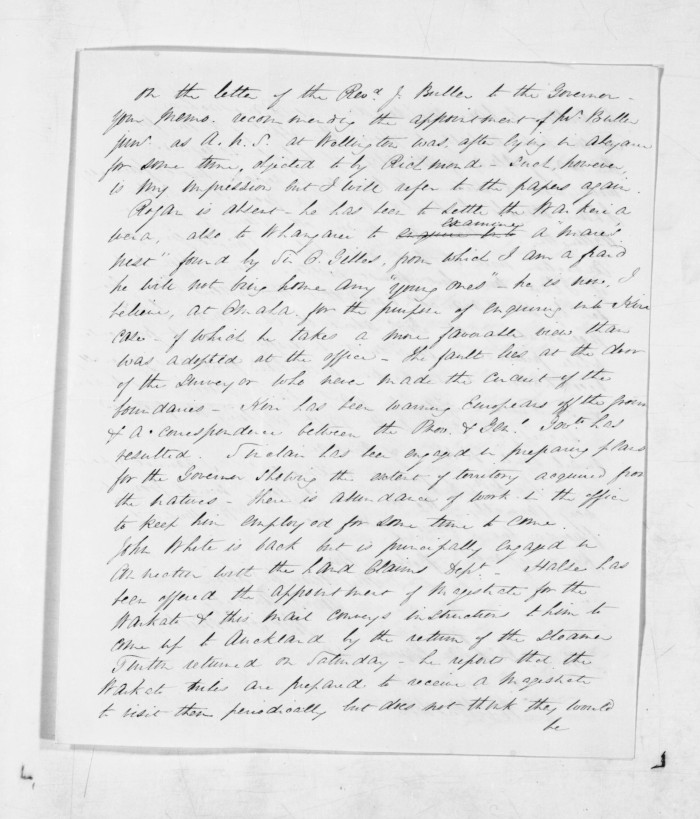 on the letter of the Revd. J. Buller to the Governor -
Your Memo. recommending the appointment of Mr. Buller
junr. as A. N. S. at Wellington was, after lying in abeyance
for some time, objected to by Richmond - Such, however,
is my impression but I will refer to the papers again.
Rogan is absent - he has been to settle the Waikeria
wera, also to Whangarei to examine a mare's
nest" found by Sir O. Gilles, from which I am afraid
he will not bring home any "young ones" - he is now, I
believe, at Omaha for the purpose of enquiring into
case - of which he takes a more favorable view than
was adopted at the office - The fault lies at the door
of the Surveyor who never made the circuit of the
boundaries - has been warning Europeans off the ground
& a correspondence between the Prov. & Genl. Govts. has
resulted. Sinclair has been engaged in preparing plans
for the Governor shewing the extent of territory acquired from
the natives - there is abundance of work in the office
to keep him employed for some time to come.
John White is back but is principally engaged in
connection with the Land Claims Dept - Halse has
been offered the appointment of Magistrate for the
Waikato & this mail conveys instructions to him to
come up to Auckland by the return of the Steamer
Turton returned on Saturday - he reports that the
Waikato tribes are prepared to receive a Magistrate
to visit them periodically but does not think they would
be